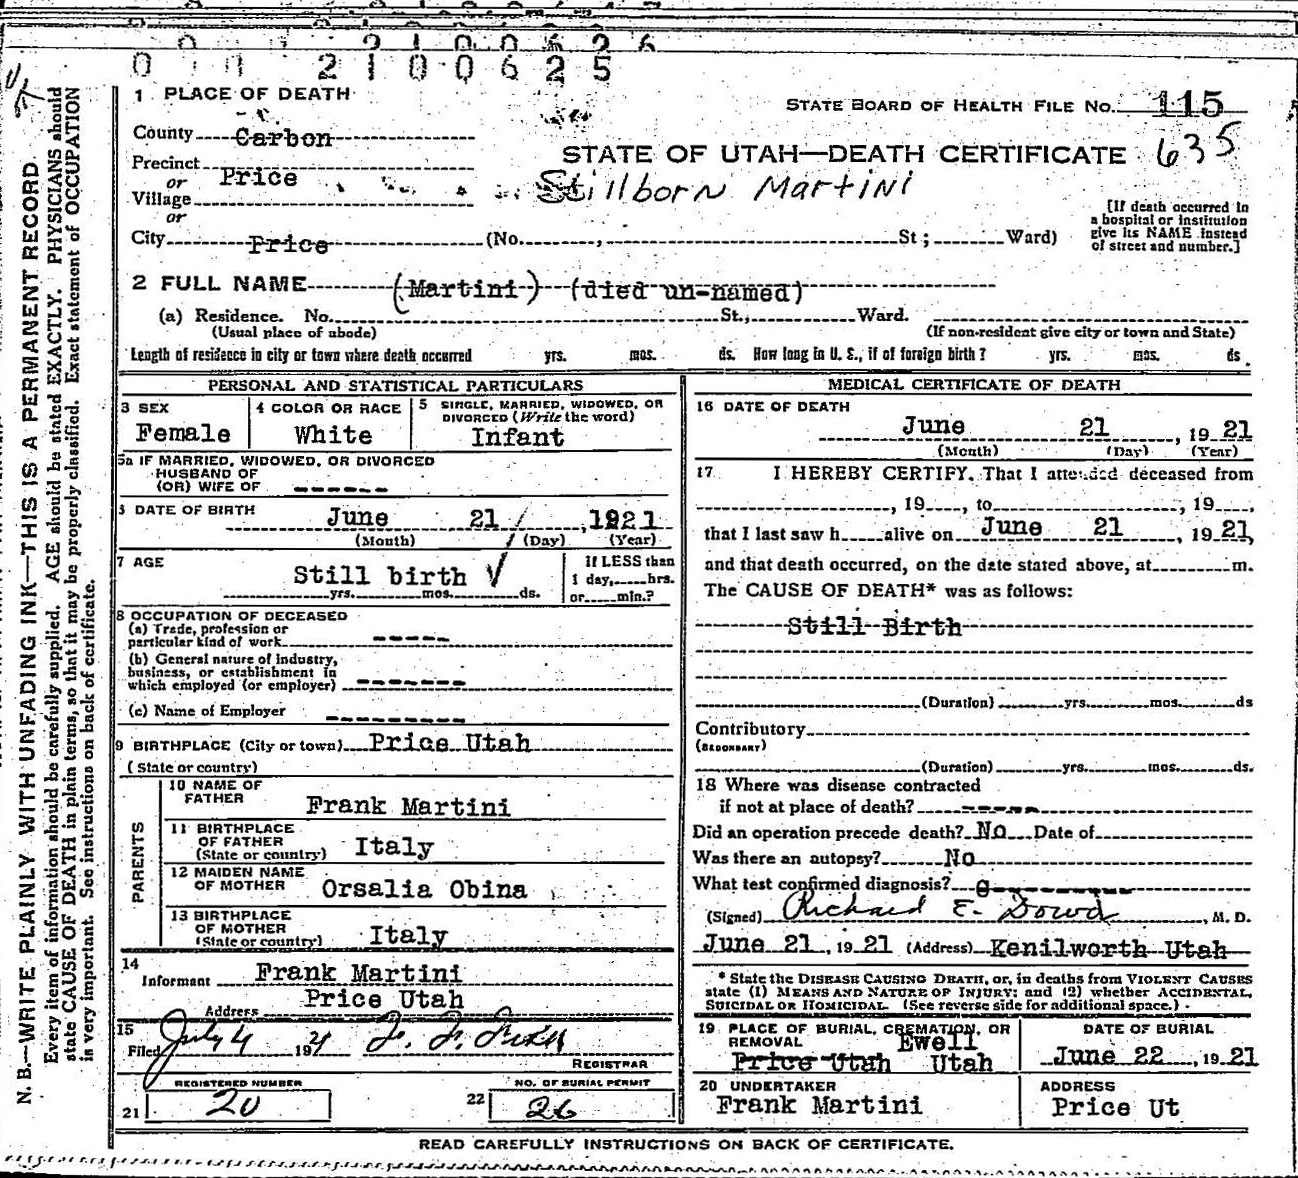 0 2100625
1 PLACE OF DEATH
STATE BOARD OF HEALTH FILE No. 115
County Carbon
STATE OF UTAH—DEATH CERTIFICATE 635
Precinct
or Price
Stillborn Martini
Village
or
City Price (No. , St; Ward)
[If death occurred in
a hospital or institution
give its NAME instead
of street and number.]
2 FULL NAME (Martini) (died un-named)
(a) Residence. No. St., Ward.
(Usual place of abode) (If non-resident give city or town and State)
Length of residence in city or town where death occurred yrs. mos. ds. How long in U. S., if of foreign birth? yrs. mos. ds
PERSONAL AND STATISTICAL PARTICULARS
3 SEX
Female
4 COLOR OR RACE
White
5 SINGLE, MARRIED, WIDOWED, OR
DIVORCED (Write the word)
Infant
5a IF MARRIED, WIDOWED, OR DIVORCED
HUSBAND OF
(OR) WIFE OF
DATE OF BIRTH June 21 , 1921
(Month) (Day) (Year)
7 AGE
Still birth
yrs. mos. ds.
If LESS than
1 day, hrs.
or min.?
8 OCCUPATION OF DECEASED
(a) Trade, profession or
particular kind of work
(b) General nature of industry,
business, or establishment in
which employed (or employer)
(c) Name of Employer
9 BIRTHPLACE (City or town) Price Utah
(State or country)
PARENTS
10 NAME OF
FATHER Frank Martini
11 BIRTHPLACE
OF FATHER
(State or country) Italy
12 MAIDEN NAME
OF MOTHER Orsalia Obina
13 BIRTHPLACE
OF MOTHER
(State or country) Italy
14
Informant Frank Martini
Price Utah
Address
15
Filed July 4 1921
REGISTRAR
REGISTERED NUMBER
21 20
NO. OF BURIAL PERMIT
22 26
MEDICAL CERTIFICATE OF DEATH
16 DATE OF DEATH
June 21 , 1921
(Month) (Day) (Year)
17 I HEREBY CERTIFY, That I attended deceased from
, 19 , to , 19 ,
that I last saw h alive on June 21 , 1921,
and that death occurred, on the date stated above, at m.
The CAUSE OF DEATH* was as follows:
Still Birth
(Duration) yrs. mos. ds
Contributory
(SECONDARY)
(Duration) yrs. mos. ds.
18 Where was disease contracted
if not at place of death?
Did an operation precede death? No Date of
Was there an autopsy? No
What test confirmed diagnosis?
(Signed) Richard E. Dowd , M. D.
June 21 , 1921 (Address) Kenilworth Utah
* State the DISEASE CAUSING DEATH, or, in deaths from VIOLENT CAUSES
state (1) MEANS AND NATURE OF INJURY; and (2) whether ACCIDENTAL,
SUICIDAL OR HOMICIDAL. (See reverse side for additional space.)
19 PLACE OF BURIAL, CREMATION, OR
REMOVAL Ewell
Price Utah Utah
DATE OF BURIAL
June 22 , 1921
20 UNDERTAKER
Frank Martini
ADDRESS
Price Ut
READ CAREFULLY INSTRUCTIONS ON BACK OF CERTIFICATE.
N. B.—WRITE PLAINLY WITH UNFADING INK—THIS IS A PERMANENT RECORD
Every item of information should be carefully supplied. AGE should be stated EXACTLY. PHYSICIANS should
state CAUSE OF DEATH in plain terms, so that it may be properly classified. Exact statement of OCCUPATION
is very important. See instructions on back of certificate.